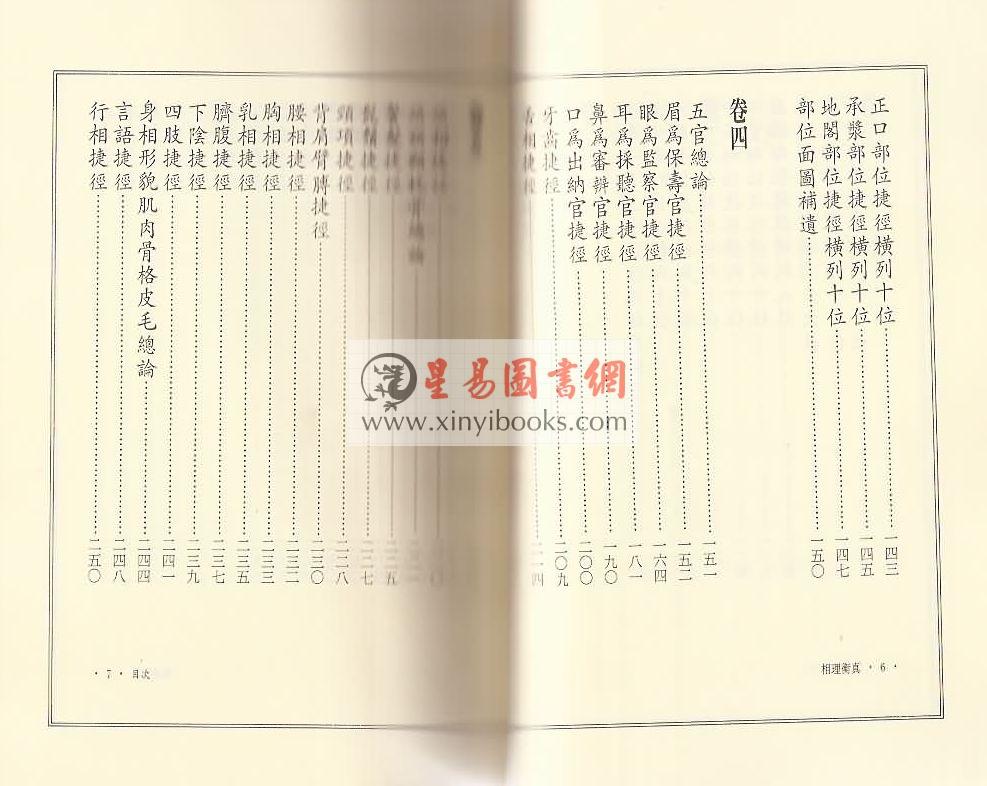 正口部位捷徑橫列十位……一四三
承漿部位捷徑橫列十位……一四五
地閣部位捷徑橫列十位……一四七
部位面圖補遺……一五〇
卷四
五官總論……一五一
眉爲保壽官捷徑……一五二
眼爲監察官捷徑……一六四
耳爲採聽官捷徑……一八一
鼻爲審辨官捷徑……一九〇
口爲出納官捷徑……二〇〇
牙齒捷徑……二〇九
相理衡真・6・
頸項捷徑……二二八
背肩臂膊捷徑……二三〇
腰相捷徑……二三二
胸相捷徑……二三三
乳相捷徑……二三五
臍腹捷徑……二三七
下陰捷徑……二三九
四肢捷徑……二四一
身相形貌肌肉骨格皮毛總論……二四四
言語捷徑……二四八
行相捷徑……二五〇
・7・目次
星易圖書網
www.xinyibooks.com